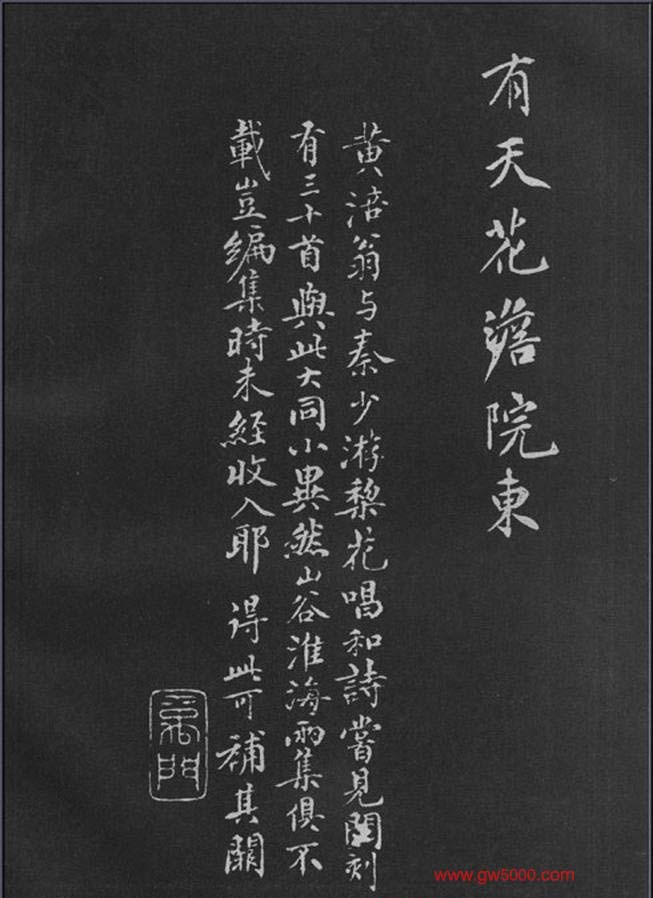 有天花澹院東
黄涪翁与秦少游梨花唱和詩嘗見刻
有三十首與此大同小異然山谷淮海兩集俱不
載豈編集時未經收入耶 得此可補其闕
www.gw5000.com